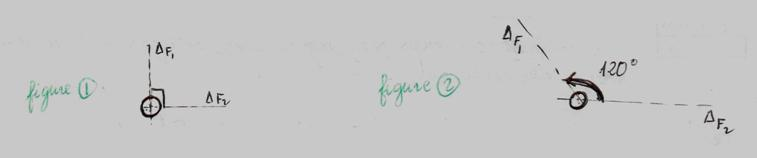 figure ①
ΔF₁
ΔF₂
figure ②
ΔF₁
120°
ΔF₂